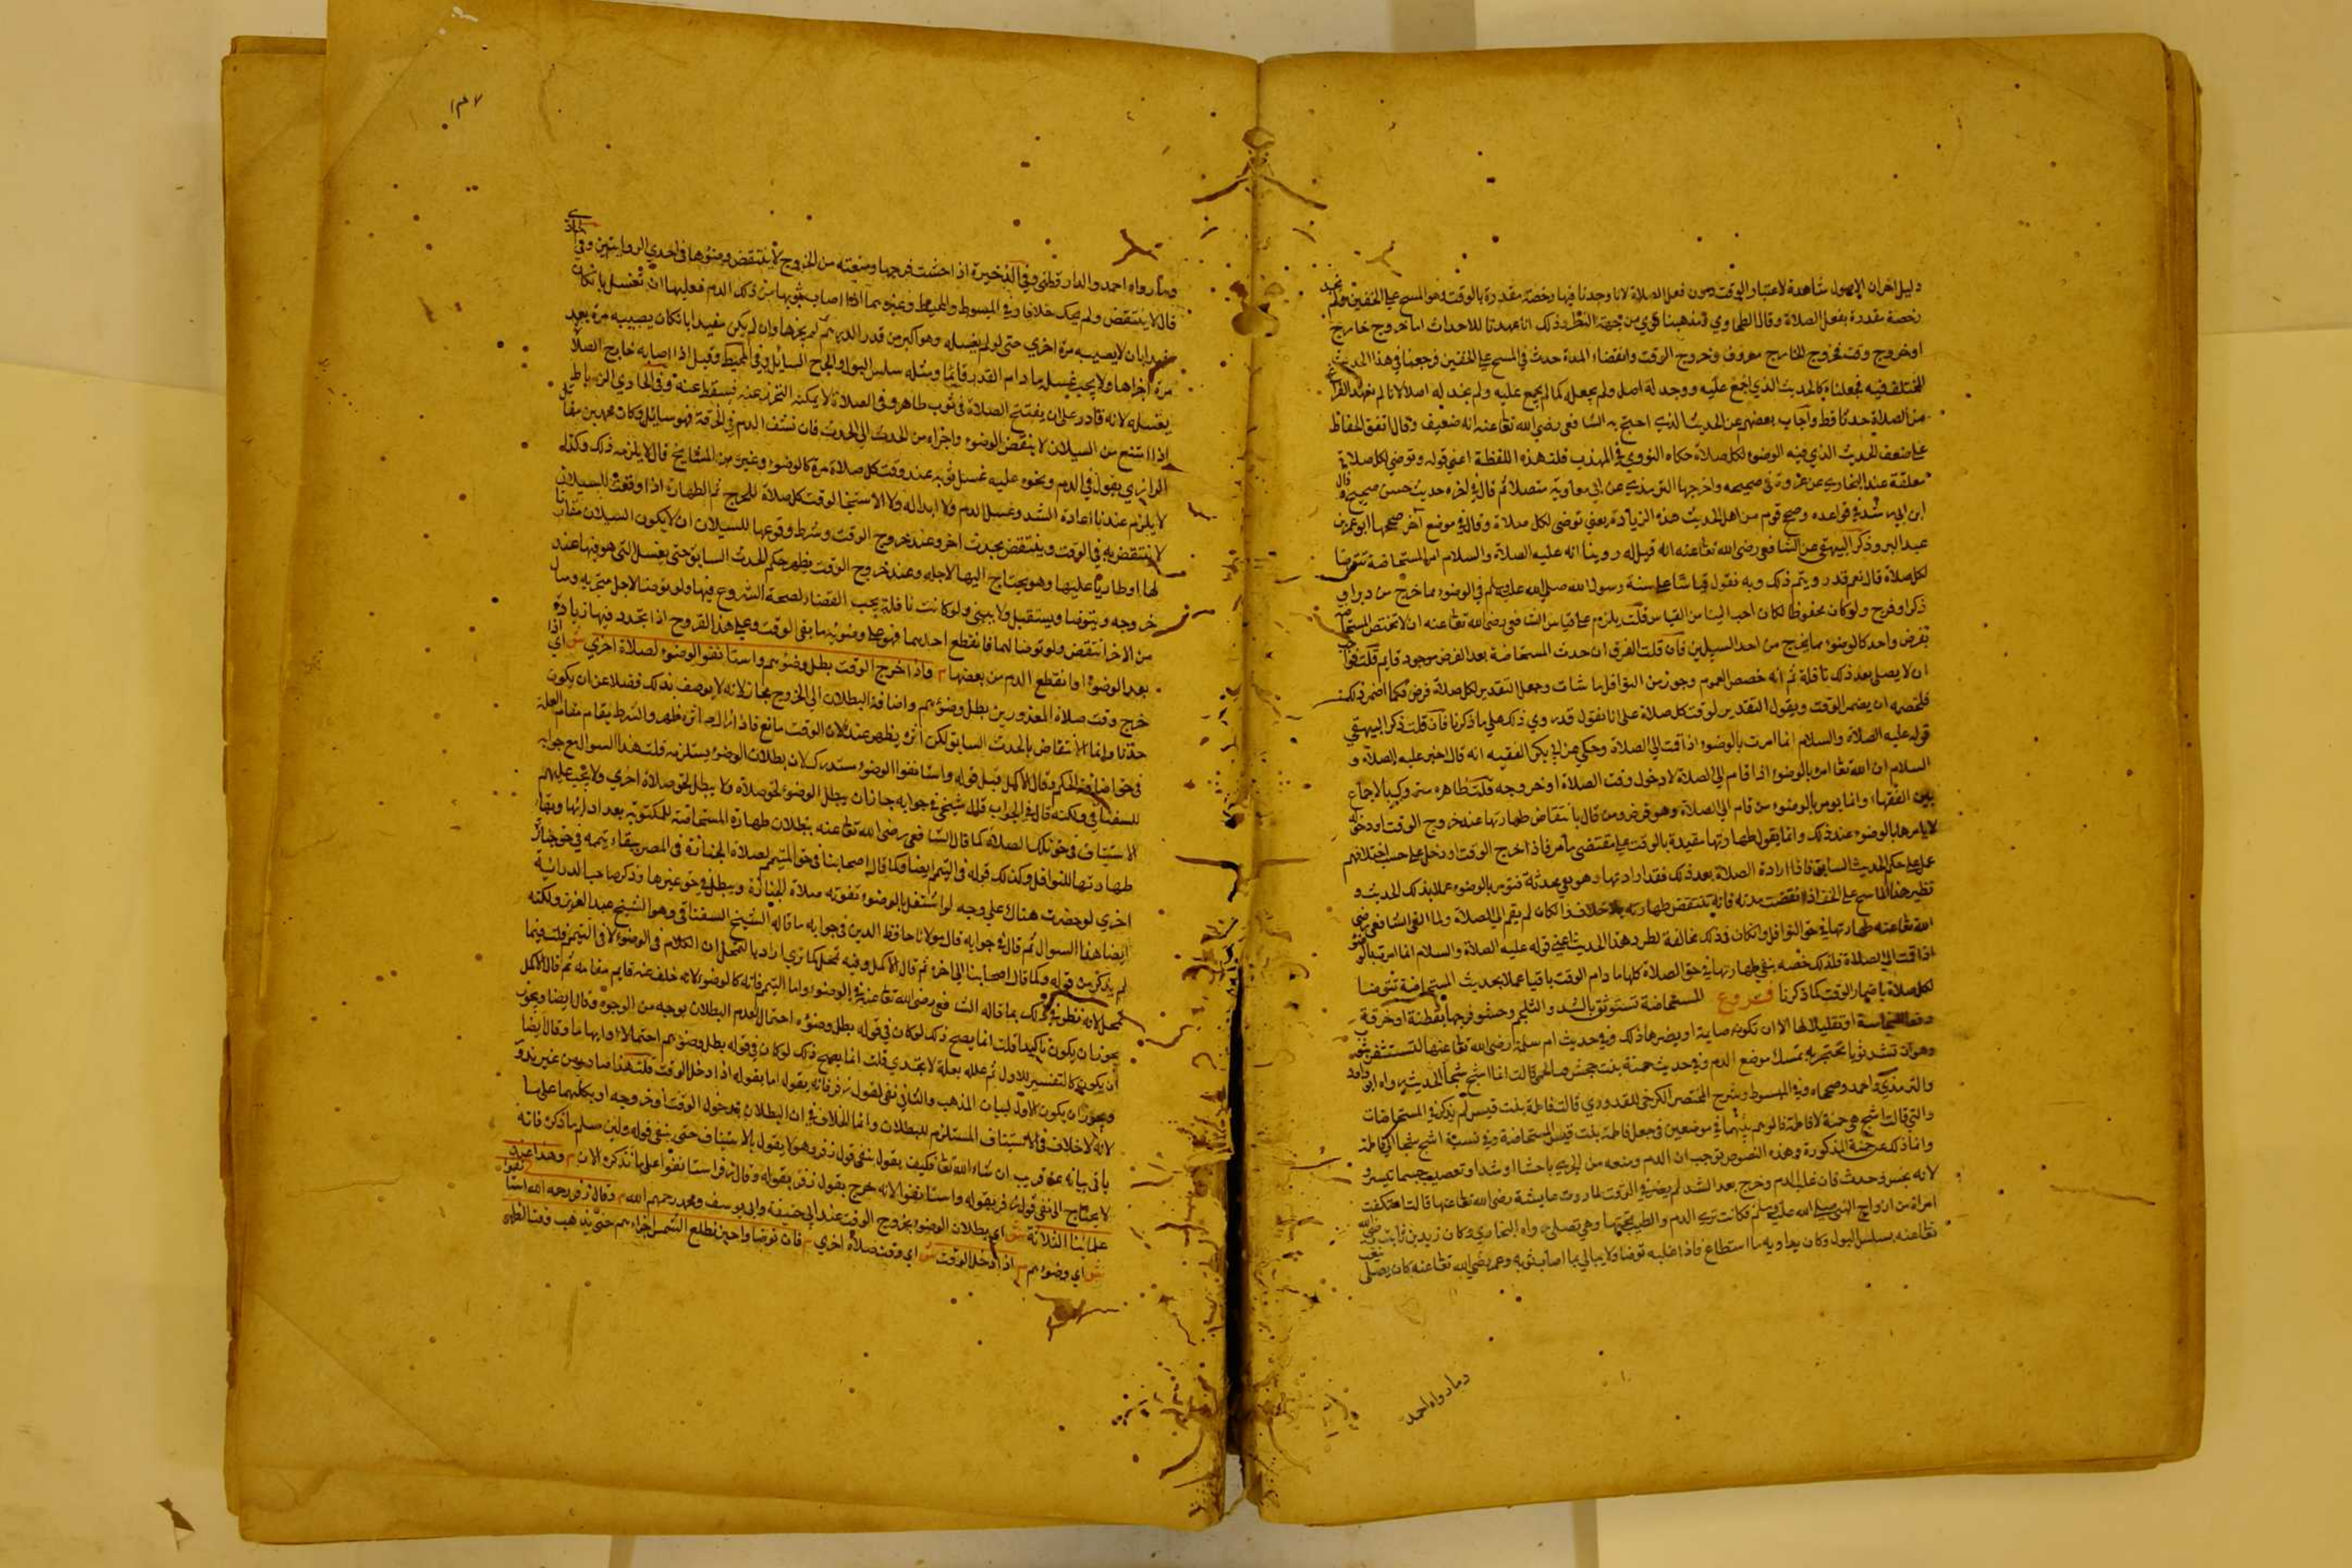 دليل اخران الاصول شاهدة لاعتبار الوقت دون فعل الصلاة لانا وجدنا فيها رخصة مقدرة بالوقت وهو المسح على الخفين ولم نجد
رخصة مقدرة بفعل الصلاة وقال الطحاوي فمذهبنا قوي من جهة النظر وذلك انا عهدنا للاحداث اما خروج خارج
او خروج وقت فخروج الخارج معروف وخروج الوقت وانقضاء المدة حدث في المسح على الخفين فرجعنا في هذا الحدث
المختلف فيه فجعلناه كالحديث الذي اجمع عليه ووجد له اصل ولم يجعل كما لم يجمع عليه ولم نجد له اصلا لانا لم نعهد الفراغ
من الصلاة حدثا قط واجاب بعضهم عن الحديث الذي احتج به الشافعي رضي الله تعا عنه انه ضعيف وقال اتفق الحفاظ
على ضعف الحديث الذي فيه الوضوء لكل صلاة حكاه النووي في المهذب قلت هذه اللفظة اعني قوله وتوضي لكل صلاة
معلقة عند البخاري عن عروة في صحيحه واخرجها الترمذي عن ابي معاوية متصلا ثم قال في اخره حديث حسن صحيح وقال
ابن رشد في قواعده وصحح قوم من اهل الحديث هذه الزيادة يعني توضي لكل صلاة وقال في موضع آخر صححها ابو عمر بن
عبد البر وذكر البيهقي عن الشافعي رضي الله تعا عنه انه قيل له روينا انه عليه الصلاة والسلام امر المستحاضة تتوضا
لكل صلاة قال نعم قد رويتم ذلك وبه نقول قياسا على سنة رسول الله صلى الله عليه وسلم في الوضوء مما خرج من دبر او
ذكر او فرج ولو كان محفوظا لكان احب الينا من القياس قلت يلزم على قياس الشافعي رضي الله تعا عنه ان لا تختص المستحاضة
بفرض واحد كالوضوء مما يخرج من احد السبيلين فان قلت الفرق ان حدث المستحاضة بعد الفرض موجود قايم قلت فوجب
ان لا يصلي بعد ذلك نافلة ثم انه خصص العموم وجوز من النوافل ما شات وجعل التقدير لكل صلاة فرض فكما اضمر ذلك
فلخصمه ان يضمر الوقت ويقول التقدير لوقت كل صلاة على انا نقول قد روي ذلك على ما ذكرنا فان قلت ذكر البيهقي
قوله عليه الصلاة والسلام انما امرت بالوضوء اذا قمت الى الصلاة وحكي عن ابي بكر الفقيه انه قال اخبر عليه الصلاة و
السلام ان الله تعا امره بالوضوء اذا قام الى الصلاة لا دخول وقت الصلاة او خروجه قلت ظاهره متروك بالاجماع
بين الفقهاء وانما يومر بالوضوء من قام الى الصلاة وهو فرض ومن قال بانتقاض طهارتها عند خروج الوقت او دخوله
لا يامرها بالوضوء عند ذلك وانما يقول طهارتها مقيدة بالوقت على مقتضى ما مر فاذا خرج الوقت او دخل على حسب اختلافهم
عمل على حكم الحدث السابق فاذا ارادة الصلاة بعد ذلك فقد ارادتها وهي محدثة فتومر بالوضوء عملا بذلك الحديث و
نظير هذا الماسح على الخف اذا انقضت مدته فانه تنتقض طهارته بلا خلاف ... لم يقم الى الصلاة ولما القى الشافعي رضي
الله تعا عنه طهارتها في حق النوافل ... كان ذلك مخالفة لطرد هذا الحديث اعني قوله عليه الصلاة والسلام انما امرت بالوضوء
اذا قمت الى الصلاة فلذلك خصه ... طهارتها في حق الصلاة كلها ما دام الوقت باقيا عملا بحديث المستحاضة تتوضا
لكل صلاة باضمار الوقت كما ذكرنا فروع المستحاضة تستوثق بالشد والتلجم وحشو فرجها بقطنة او خرقة
دفعا للنجاسة او تقليلا لها الا ان تكون صايمة او يضرها ذلك وفي حديث ام سلمة رضي الله تعا عنها لتستثفر بثوب
وهو ان تشد ثوبا تحتجر به يمسك موضع الدم وفي حديث حمنة بنت جحش ... قالت انما اثج ثجا الحديث رواه ابو داود
والترمذي واحمد وصححاه وفي المبسوط وشرح المختصر الكرخي للقدوري قالت فاطمة بنت قيس لم يذكر في المستحاضات
والتي قالت اثج هي حمنة لا فاطمة ... في موضعين في جعل فاطمة بنت قيس المستحاضة وفي نسبة اثج ثجا الى فاطمة
وانما ذلك عن حمنة المذكورة وهذه النصوص توجب ان الدم ومنعه من الجري باحشا او شد او تعصيب حسب ما تيسر و
لانه نجس وحدث فان غلب الدم وخرج بعد الشد لم يضر في الوقت لما روت عايشة رضي الله تعا عنها قالت اعتكفت
امراة من ازواج النبي صلى الله عليه وسلم فكانت ترى الدم والطست تحتها وهي تصلي رواه البخاري وكان زيد بن ثابت رضي الله
تعا عنه به سلس البول وكان يداويه ما استطاع فاذا غلبه توضا ولا يبالي بما اصاب ثوبه وعمر رضي الله تعا عنه كان يصلي
وما رواه احمد
١٣٧
وما رواه احمد والدارقطني وفي الذخيرة اذا احتشت فرجها ومنعته من الخروج لا ينتقض وضوءها في احدي الروايتين وفي الحاوي
قال لا ينتقض ولم يحك خلافا وفي المبسوط والمحيط وغيرهما اذا اصاب ثوبها من ذلك الدم فعليها ان تغسل ان كان
مفيدا بان لا يصيبه مرة اخري حتى لو لم يغسله وهو اكبر من قدر الدرهم لم يجزها وان لم يكن مفيدا بان كان يصيبه مرة بعد
مرة اجزاها ولا يجب غسل ما دام القدر قايما ومثله سلس البول والجرح السائل وفي المحيط وقيل اذا اصابه خارج الصلاة
يغسله لانه قادر على ان يفتتح الصلاة في ثوب طاهر وفي الصلاة لا يمكنه التحرز عنه فيسقط عنه وفي الحاوي الرباطي
اذا امتنع من السيلان لا ينقض الوضوء واجزاه من الحدث الى الحدث فان نشف الدم في الخرقة فهو سايل وكان محمد بن مقاتل
الرازي يقول في الدم ونحوه عليه غسل ثوبه عند وقت كل صلاة مرة كالوضوء وغيره من المشايخ قال لا يلزمه ذلك وكذلك
لا يلزم عندنا اعادة الشد وغسل الدم ولا ابداله ولا الاستنجا لوقت كل صلاة للحرج ثم الطهارة اذا وقعت للسيلان
لا ينتقض به في الوقت وينتقض بحدث اخر وعند خروج الوقت وشرط وقوعها للسيلان ان لا يكون السيلان مقارنا
لها او طاريا عليها وهو يحتاج اليها لاجله وعند خروج الوقت يظهر حكم الحدث السابق حتى يغسل التي هو فيها عند
خروجه ويتوضا ويستقبل ولا يبني ولو كانت نافلة يجب القضاء لصحة الشروع فيها ولو توضا لاجل منخريه وسال
من الاخر انتقض ولو توضا لهما فانقطع احدهما فهو على وضوئه ما بقي الوقت وعلى هذا القروح اذا تجدد فيها زيادة
بعد الوضوء او انقطع الدم من بعضها م فاذا خرج الوقت بطل وضوئهم واستانفوا الوضوء لصلاة اخري ش اي اذا
خرج وقت صلاة المعذورين بطل وضوءهم واضافة البطلان الى الخروج مجاز لانه لا يوصف بذلك فضلا عن ان يكون
حدثا وانما الانتقاض بالحدث السابق لكن اثره يظهر عنده لان الوقت مانع فاذا زال ... اثره ظهر والشرط يقام مقام العلة
في حق اضافة الحكم وقال الاكمل قيل قوله واستانفوا الوضوء مستدرك لان بطلان الوضوء يستلزمه قلت هذا السوال مع جوابه
للسغناقي ولكنه قال في الجواب قال شيخي في جوابه جاز ان يبطل الوضوء لحق صلاة ولا يبطل لحق صلاة اخري ولا يجب عليهم
الاستيناف في حق تلك الصلاة كما قال الشافعي رضي الله تعا عنه ببطلان طهارة المستحاضة للمكتوبة بعد ادائها وبقاء
طهارتها للنوافل وكذلك قوله في التيمم ايضا وكما قال اصحابنا في حق المتيمم لصلاة الجنازة في المصر ببقاء تيممه في حق جنازة
اخري لو حضرت هناك على وجه لو اشتغل بالوضوء تفوته صلاة الجنازة ويبطل في حق غيرها وذكر صاحب الدراية
ايضا هذا السوال ثم قال في جوابه قال مولانا حافظ الدين في جوابه ما قاله الشيخ السغناقي وهو الشيخ عبد العزيز ولكنه
لم يذكر من قوله وكما قال اصحابنا الى اخره ثم قال الاكمل وفيه تمحل كما تري اراد بالتمحل ان الكلام في الوضوء لا في التيمم قلت فيما
تمحل لانه نظير في ذلك بما قاله الشافعي رضي الله تعا عنه في الوضوء واما التيمم فانه كالوضوء لانه خلف عنه قايم مقامه ثم قال الاكمل
يجوز ان يكون تاكيدا قلت انما يصح ذلك لو كان في قوله بطل وضوءه احتمال لعدم البطلان بوجه من الوجوه وقال ايضا ويجوز
ان يكون كالتفسير للاول ثم علله بعلة لا يجدي قلت انما يصح ذلك لو كان في قوله بطل وضوءهم احتمالا او ابهاما وقال ايضا
ويجوز ان يكون الاول لبيان المذهب والثاني نفي لقول زفر فانه يقول اما بقوله اذا دخل الوقت قلت هذا صادر من غير تدبر
لانه لا خلاف في الاستيناف المستلزم للبطلان وانما الخلاف في ان البطلان بدخول الوقت او خروجه او بكليهما على ما
ياتي بيانه عن قريب ان شاء الله تعا فكيف يقول ينفي قول زفر وهو لا يقول بالاستيناف حتى ينفي قوله ولين سلم ما ذكره فانه
لا يحتاج الى نفي قول زفر بقوله واستانفوا لانه خرج بقول زفر بقوله وقال زفر استانفوا على ما نذكره الان م وهذا عند
علمائنا الثلاثة ش اي بطلان الوضوء بخروج الوقت عند ابي حنيفة وابي يوسف ومحمد رحمهم الله م وقال زفر رحمه الله استانفوا
ش اي وضوءهم م اذا دخل الوقت ش اي وقت صلاة اخري م فان توضاوا حين تطلع الشمس اجزاءهم حتى يذهب وقت الظهر